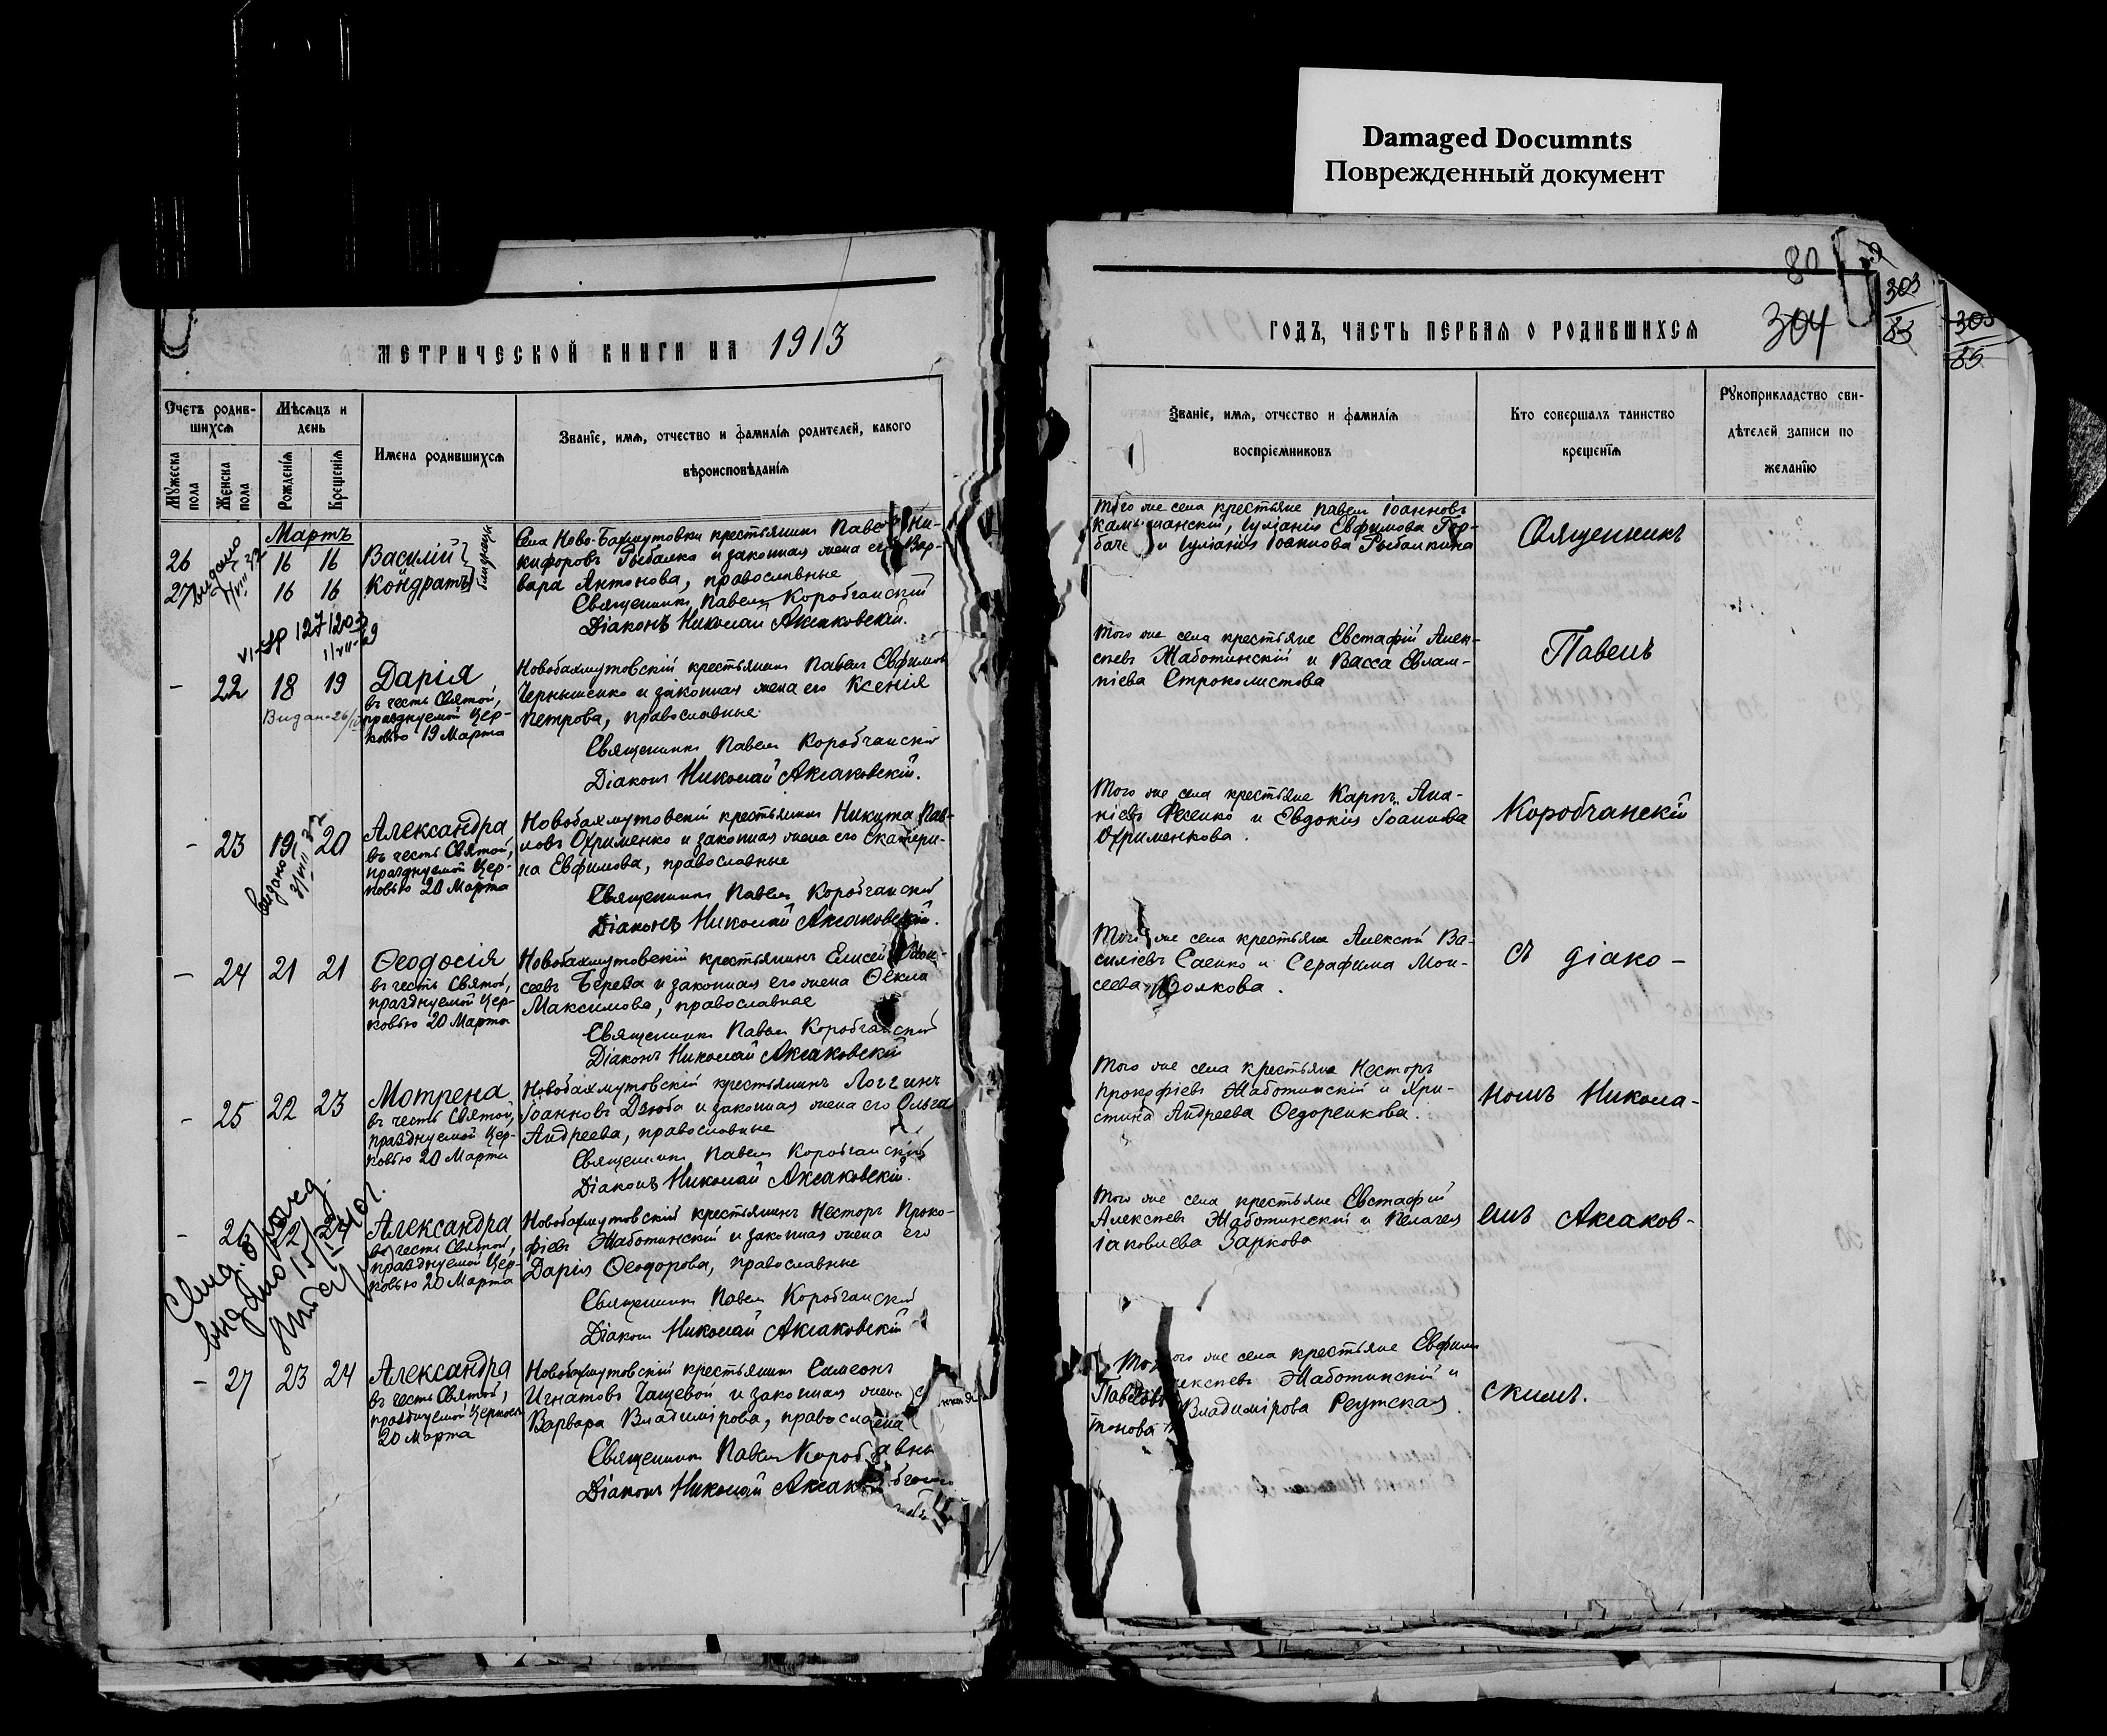 Damaged Documnts
Поврежденный документ
МЕТРИЧЕСКОЙ КНИГИ НА 1913
Счетъ родив-
шихся
Мѣсяцъ и
день
Мужеска
пола
Женска
пола
Рожденія
Крещенія
Имена родившихся
Званіе, имя, отчество и фамилія родителей, какого
вѣроисповѣданія
Мартъ
26 16 16 Василій
27 16 16 Кондратъ
близнецы
Села Ново-Бахмутовки крестьянинъ Павелъ Ни-
кифоровъ Рыбалка и законная жена его Вар-
вара Антонова, православные
Священникъ Павелъ Коробчанскій
Діаконъ Николай Аксаковскій.
- 22 18 19 Дарія
въ честь Святой,
празднуемой Цер-
ковью 19 Марта
Новобахмутовскій крестьянинъ Павелъ Евфимовъ
Чернышенко и законная жена его Ксенія
Петрова, православные
Священникъ Павелъ Коробчанскій
Діаконъ Николай Аксаковскій.
- 23 19 20 Александра
въ честь Святой,
празднуемой Цер-
ковью 20 Марта
Новобахмутовскій крестьянинъ Никита Пав-
ловъ Охрименко и законная жена его Екатери-
на Евфимова, православные
Священникъ Павелъ Коробчанскій
Діаконъ Николай Аксаковскій.
- 24 21 21 Ѳеодосія
въ честь Святой,
празднуемой Цер-
ковью 20 Марта
Новобахмутовскій крестьянинъ Елисей
сеевъ Берева и законная его жена Ѳекла
Максимова, православные
Священникъ Павелъ Коробчанскій
Діаконъ Николай Аксаковскій
- 25 22 23 Мотрена
въ честь Святой,
празднуемой Цер-
ковью 20 Марта
Новобахмутовскій крестьянинъ Логгинъ
Іоанновъ Дзюба и законная жена его Ольга
Андреева, православные
Священникъ Павелъ Коробчанскій
Діаконъ Николай Аксаковскій.
- 26 22 24 Александра
въ честь Святой,
празднуемой Цер-
ковью 20 Марта
Новобахмутовскій крестьянинъ Несторъ Проко-
фіевъ Жаботинскій и законная жена его
Дарія Ѳеодорова, православные
Священникъ Павелъ Коробчанскій
Діаконъ Николай Аксаковскій
- 27 23 24 Александра
въ честь Святой,
празднуемой Церковью
20 Марта
Новобахмутовскій крестьянинъ Симеонъ
Игнатовъ Чащевой и законная жена
Варвара Владимірова,
Священникъ Павелъ
Діаконъ Николай
80
304
303
83
305
85
ГОДЪ, ЧАСТЬ ПЕРВАЯ О РОДИВШИХСЯ
Званіе, имя, отчество и фамилія
воспріемниковъ
Кто совершалъ таинство
крещенія
Рукоприкладство сви-
дѣтелей записи по
желанію
Того же села крестьяне Павелъ Іоанновъ
Іуліанія Евфимова Гор-
и Іуліанія Іоаннова Рыбалкина
Священникъ
Того же села крестьяне Евстафій Алек-
сѣевъ Жаботинскій и Васса Евлам-
піева Строколистова
Павелъ
Того же села крестьяне Карпъ Ана-
ніевъ Фесенко и Евдокія Іоаннова
Охрименкова.
Коробчанскій
Того же села крестьяне Алексій Ва-
силіевъ Саенко и Серафима Мои-
сеева Волкова.
съ діако-
Того же села крестьяне Несторъ
Прокофіевъ Жаботинскій и Хри-
стина Андреева Ѳедоренкова.
номъ Никола-
Того же села крестьяне Евстафій
Алексѣевъ Жаботинскій и Пелагея
Іаковлева Заркова
емъ Аксаков-
же села крестьяне Евфимъ
Жаботинскій и
Владимірова Реутская.
скимъ.